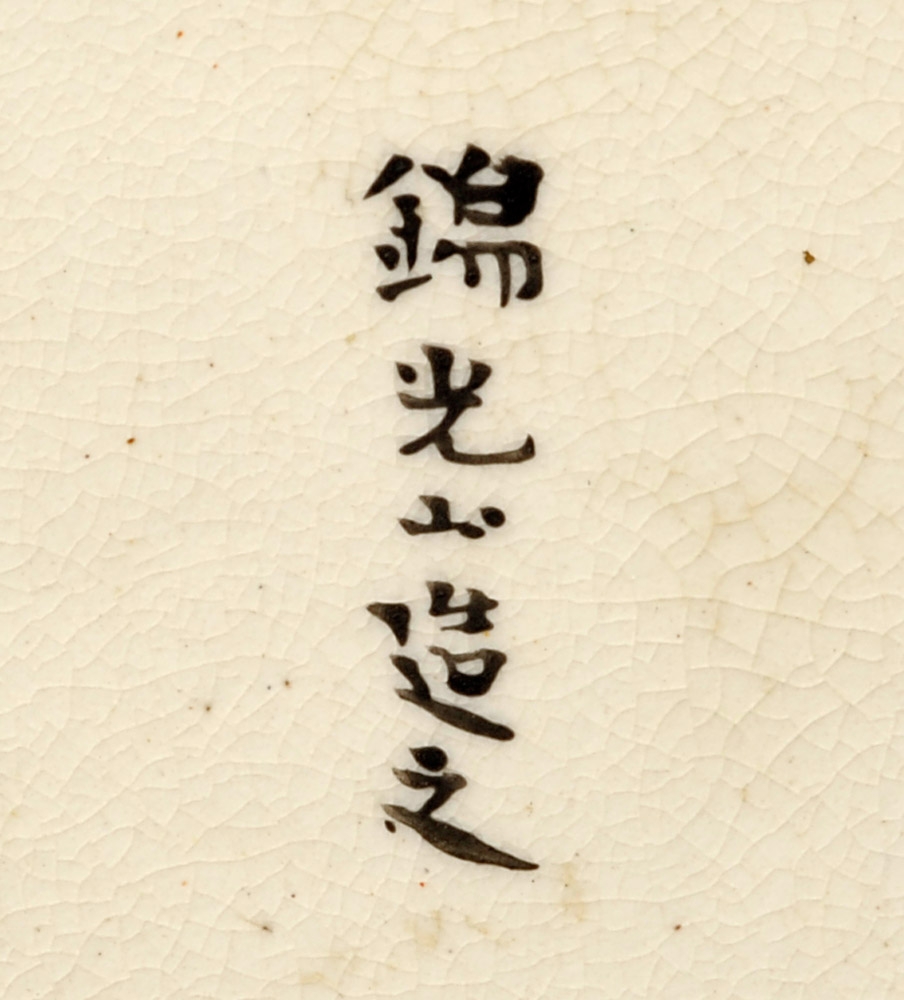 錦光山造之